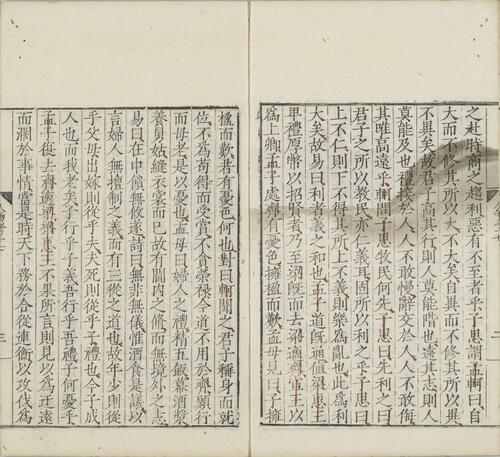 之赴時商之趨利惡有不至者乎子思謂孟軻曰自
大而不修其所以大不大矣自異而不修其所以異
不異矣故君子高其行則人莫能階也遠其志則人
莫能及也禮接於人人不敢慢辭交於人人不敢侮
其唯高遠乎軻問子思牧民何先子思曰先利之曰
君子之所以教民亦仁義耳固所以利之乎子思曰
上不仁則下不得其所上不義則樂為亂也此為利
大矣故易曰利者義之和也孟子道既通值梁惠王
卑禮厚幣以招賢者乃至梁既而去梁適齊宣王以
為上卿孟子處齊有憂色擁楹而歎孟母見曰子擁
楹而歎若有憂色何也對曰軻聞之君子稱身而就
位不為苟得而受賞不貪榮祿今道不用於齊願行
而母老是以憂也孟母曰婦人之禮精五飯冪酒漿
養舅姑縫衣裳而已故有閨內之脩而無境外之志
易曰在中饋無攸遂詩曰無非無儀惟酒食是議以
言婦人無擅制之義而有三從之道也故年少則從
乎父母出嫁則從乎夫夫死則從乎子禮也今子成
人也而我老矣子行乎子義吾行乎吾禮子何憂乎
孟子從去齊適梁梁惠王不果所言則見以為迂遠
而濶於事情當是時天下務於合從連衡以攻伐為
三